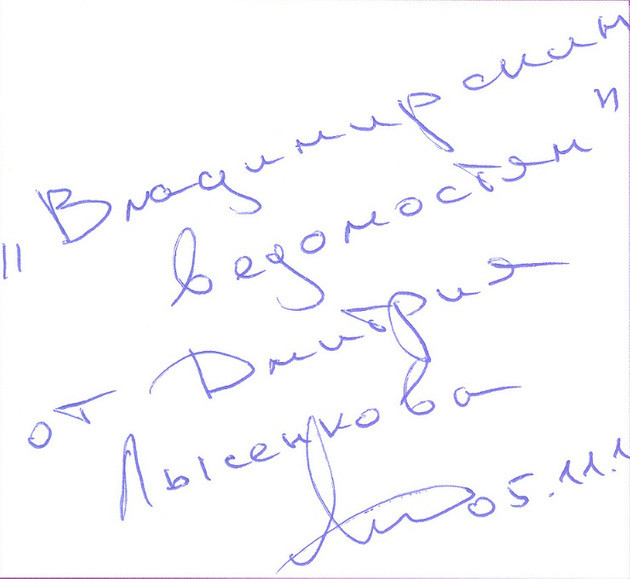 "Владимирским
ведомостям"
от Дмитрия
Лысенкова
05.11.1